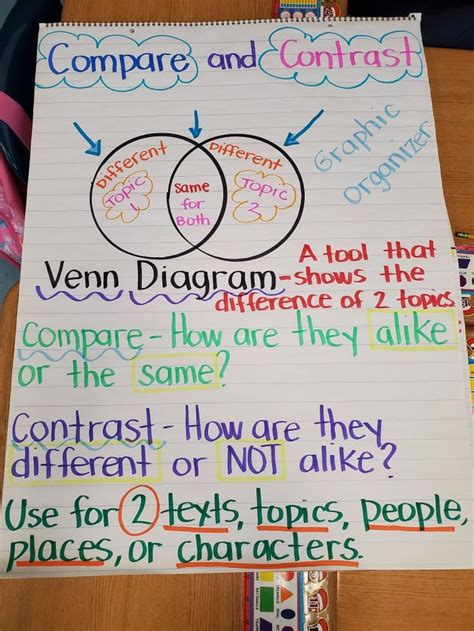 Compare and Contrast
Graphic
Organizer
Different
Topic
1
Same
for
Both
Different
Topic
2
Venn Diagram - A tool that
shows the
difference of 2 topics
Compare - How are they alike
or the same?
Contrast - How are they
different or NOT alike?
Use for 2 texts, topics, people,
places, or characters.